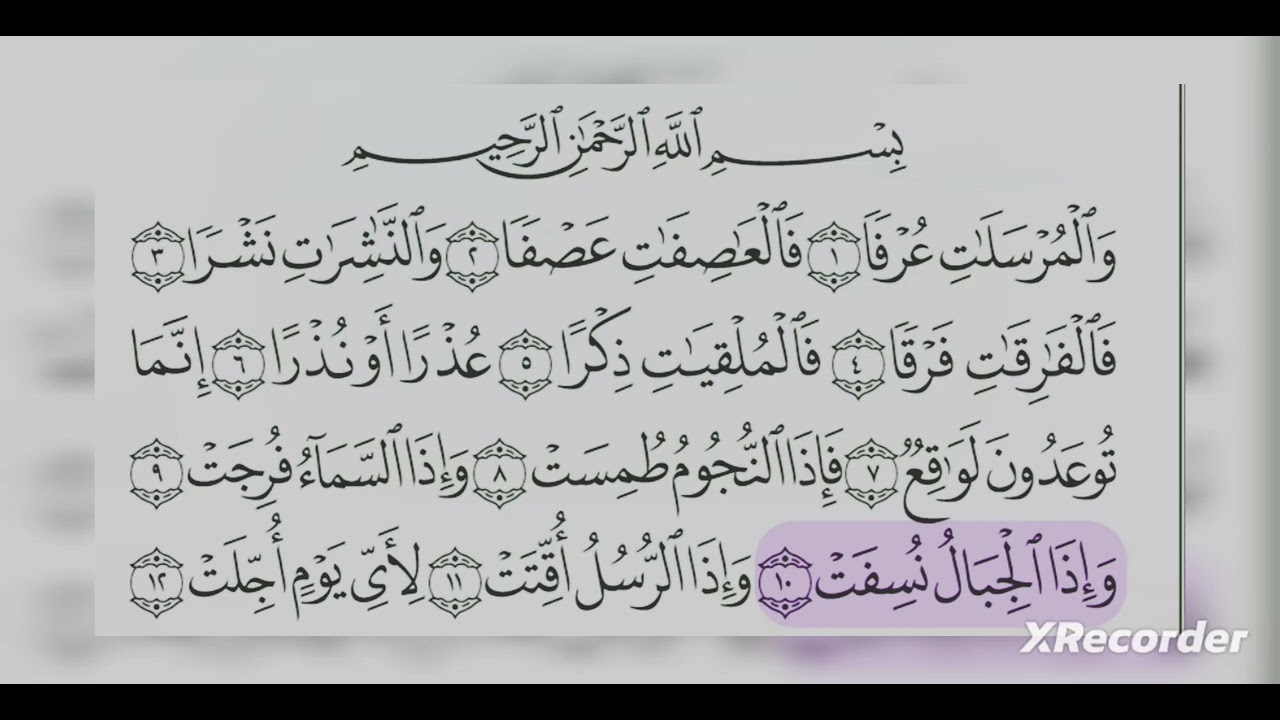 بِسْمِ ٱللَّهِ ٱلرَّحْمَٰنِ ٱلرَّحِيمِ
وَٱلْمُرْسَلَٰتِ عُرْفًا ١ فَٱلْعَٰصِفَٰتِ عَصْفًا ٢ وَٱلنَّٰشِرَٰتِ نَشْرًا ٣
فَٱلْفَٰرِقَٰتِ فَرْقًا ٤ فَٱلْمُلْقِيَٰتِ ذِكْرًا ٥ عُذْرًا أَوْ نُذْرًا ٦ إِنَّمَا
تُوعَدُونَ لَوَٰقِعٌ ٧ فَإِذَا ٱلنُّجُومُ طُمِسَتْ ٨ وَإِذَا ٱلسَّمَآءُ فُرِجَتْ ٩
وَإِذَا ٱلْجِبَالُ نُسِفَتْ ١٠ وَإِذَا ٱلرُّسُلُ أُقِّتَتْ ١١ لِأَىِّ يَوْمٍ أُجِّلَتْ ١٢
XRecorder